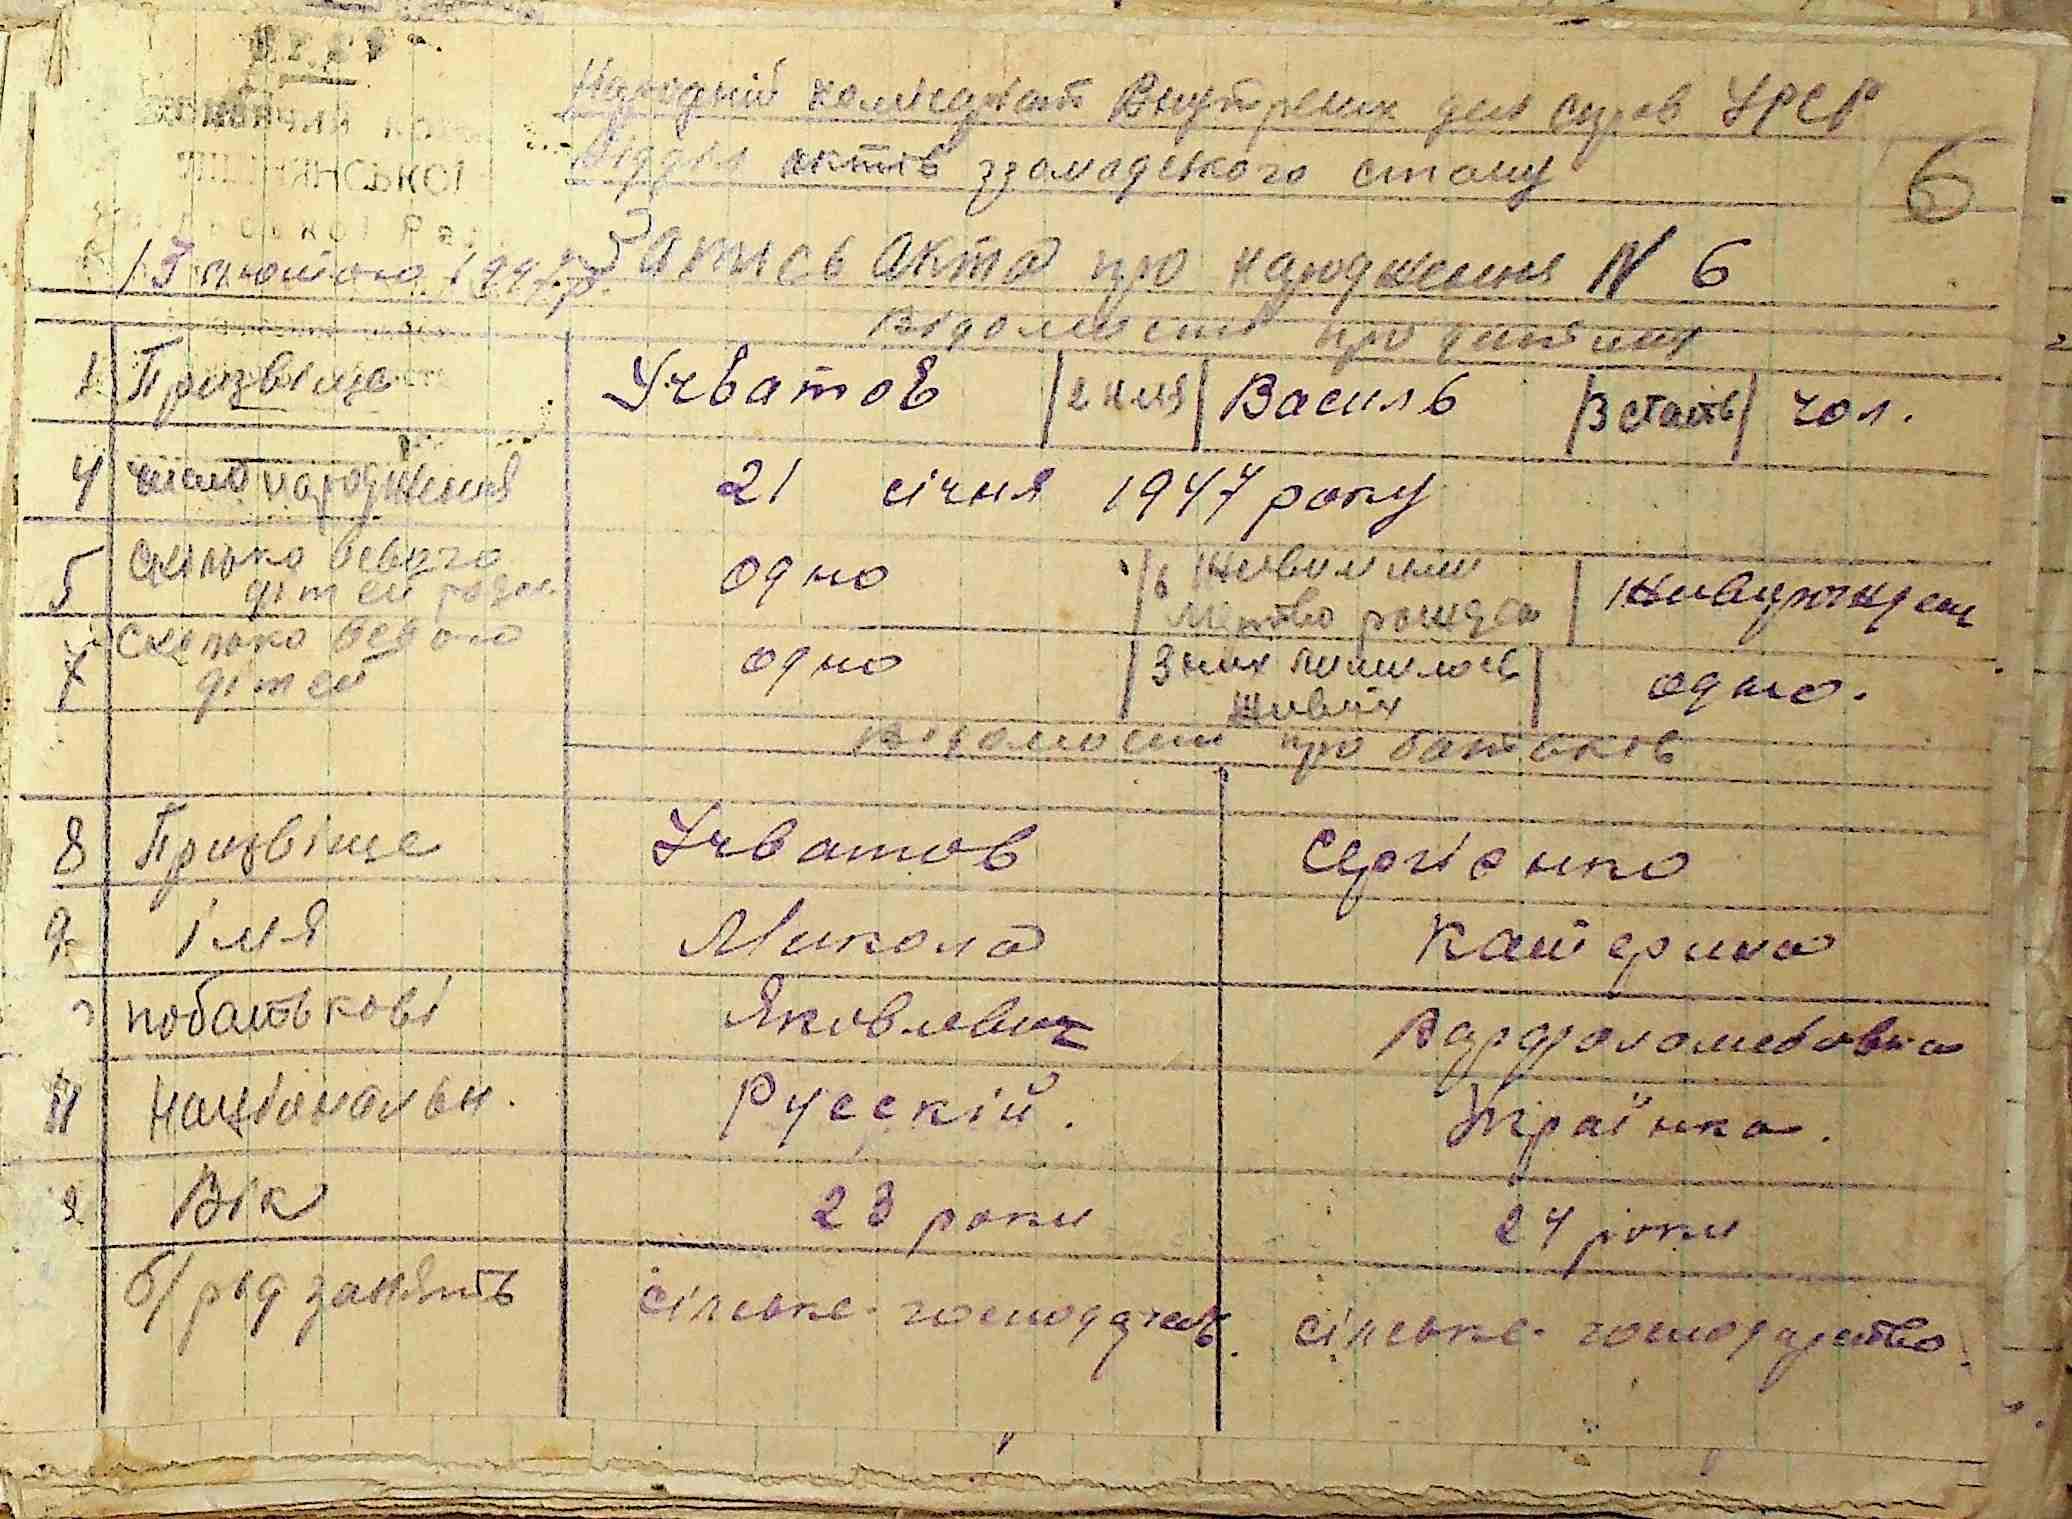 У.Р.С.Р
виконком
ПІЩАНСЬКОЇ
Народній комісаріат Внутрених дел справ УРСР
Відділ актів громадського стану
6
13 лютого 1947 р.
Запись Акта про народження N 6
Відомости про дитину
1 Призвіще Учватов 2 імя Василь 3 стать чол.
4 число народження 21 січня 1947 року
5 Скілько всього дітей родил. одно 6 Живим или мертво рожден Живирожден
7 Скілько всього дітей одно З них лишилось живих одно.
Відомости про батьків
8 Призвіще Учватов Сергієнко
9 імя Микола Катерина
побатькові Яковлевич Вархоломеєвна
11 Національн. Русскій. Українка.
Вік 23 роки 24 роки
б/ рід занять сільське-господарств. сільське-господарство.